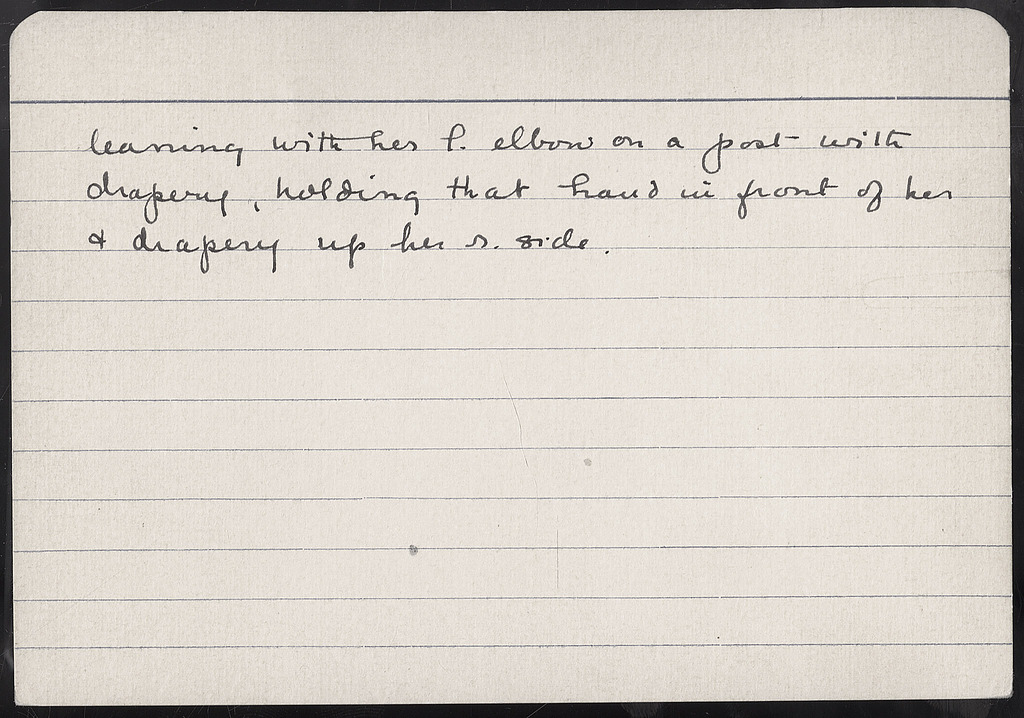 leaning with her l. elbow on a post with
drapery, holding that hand in front of her
& drapery up her r. side.